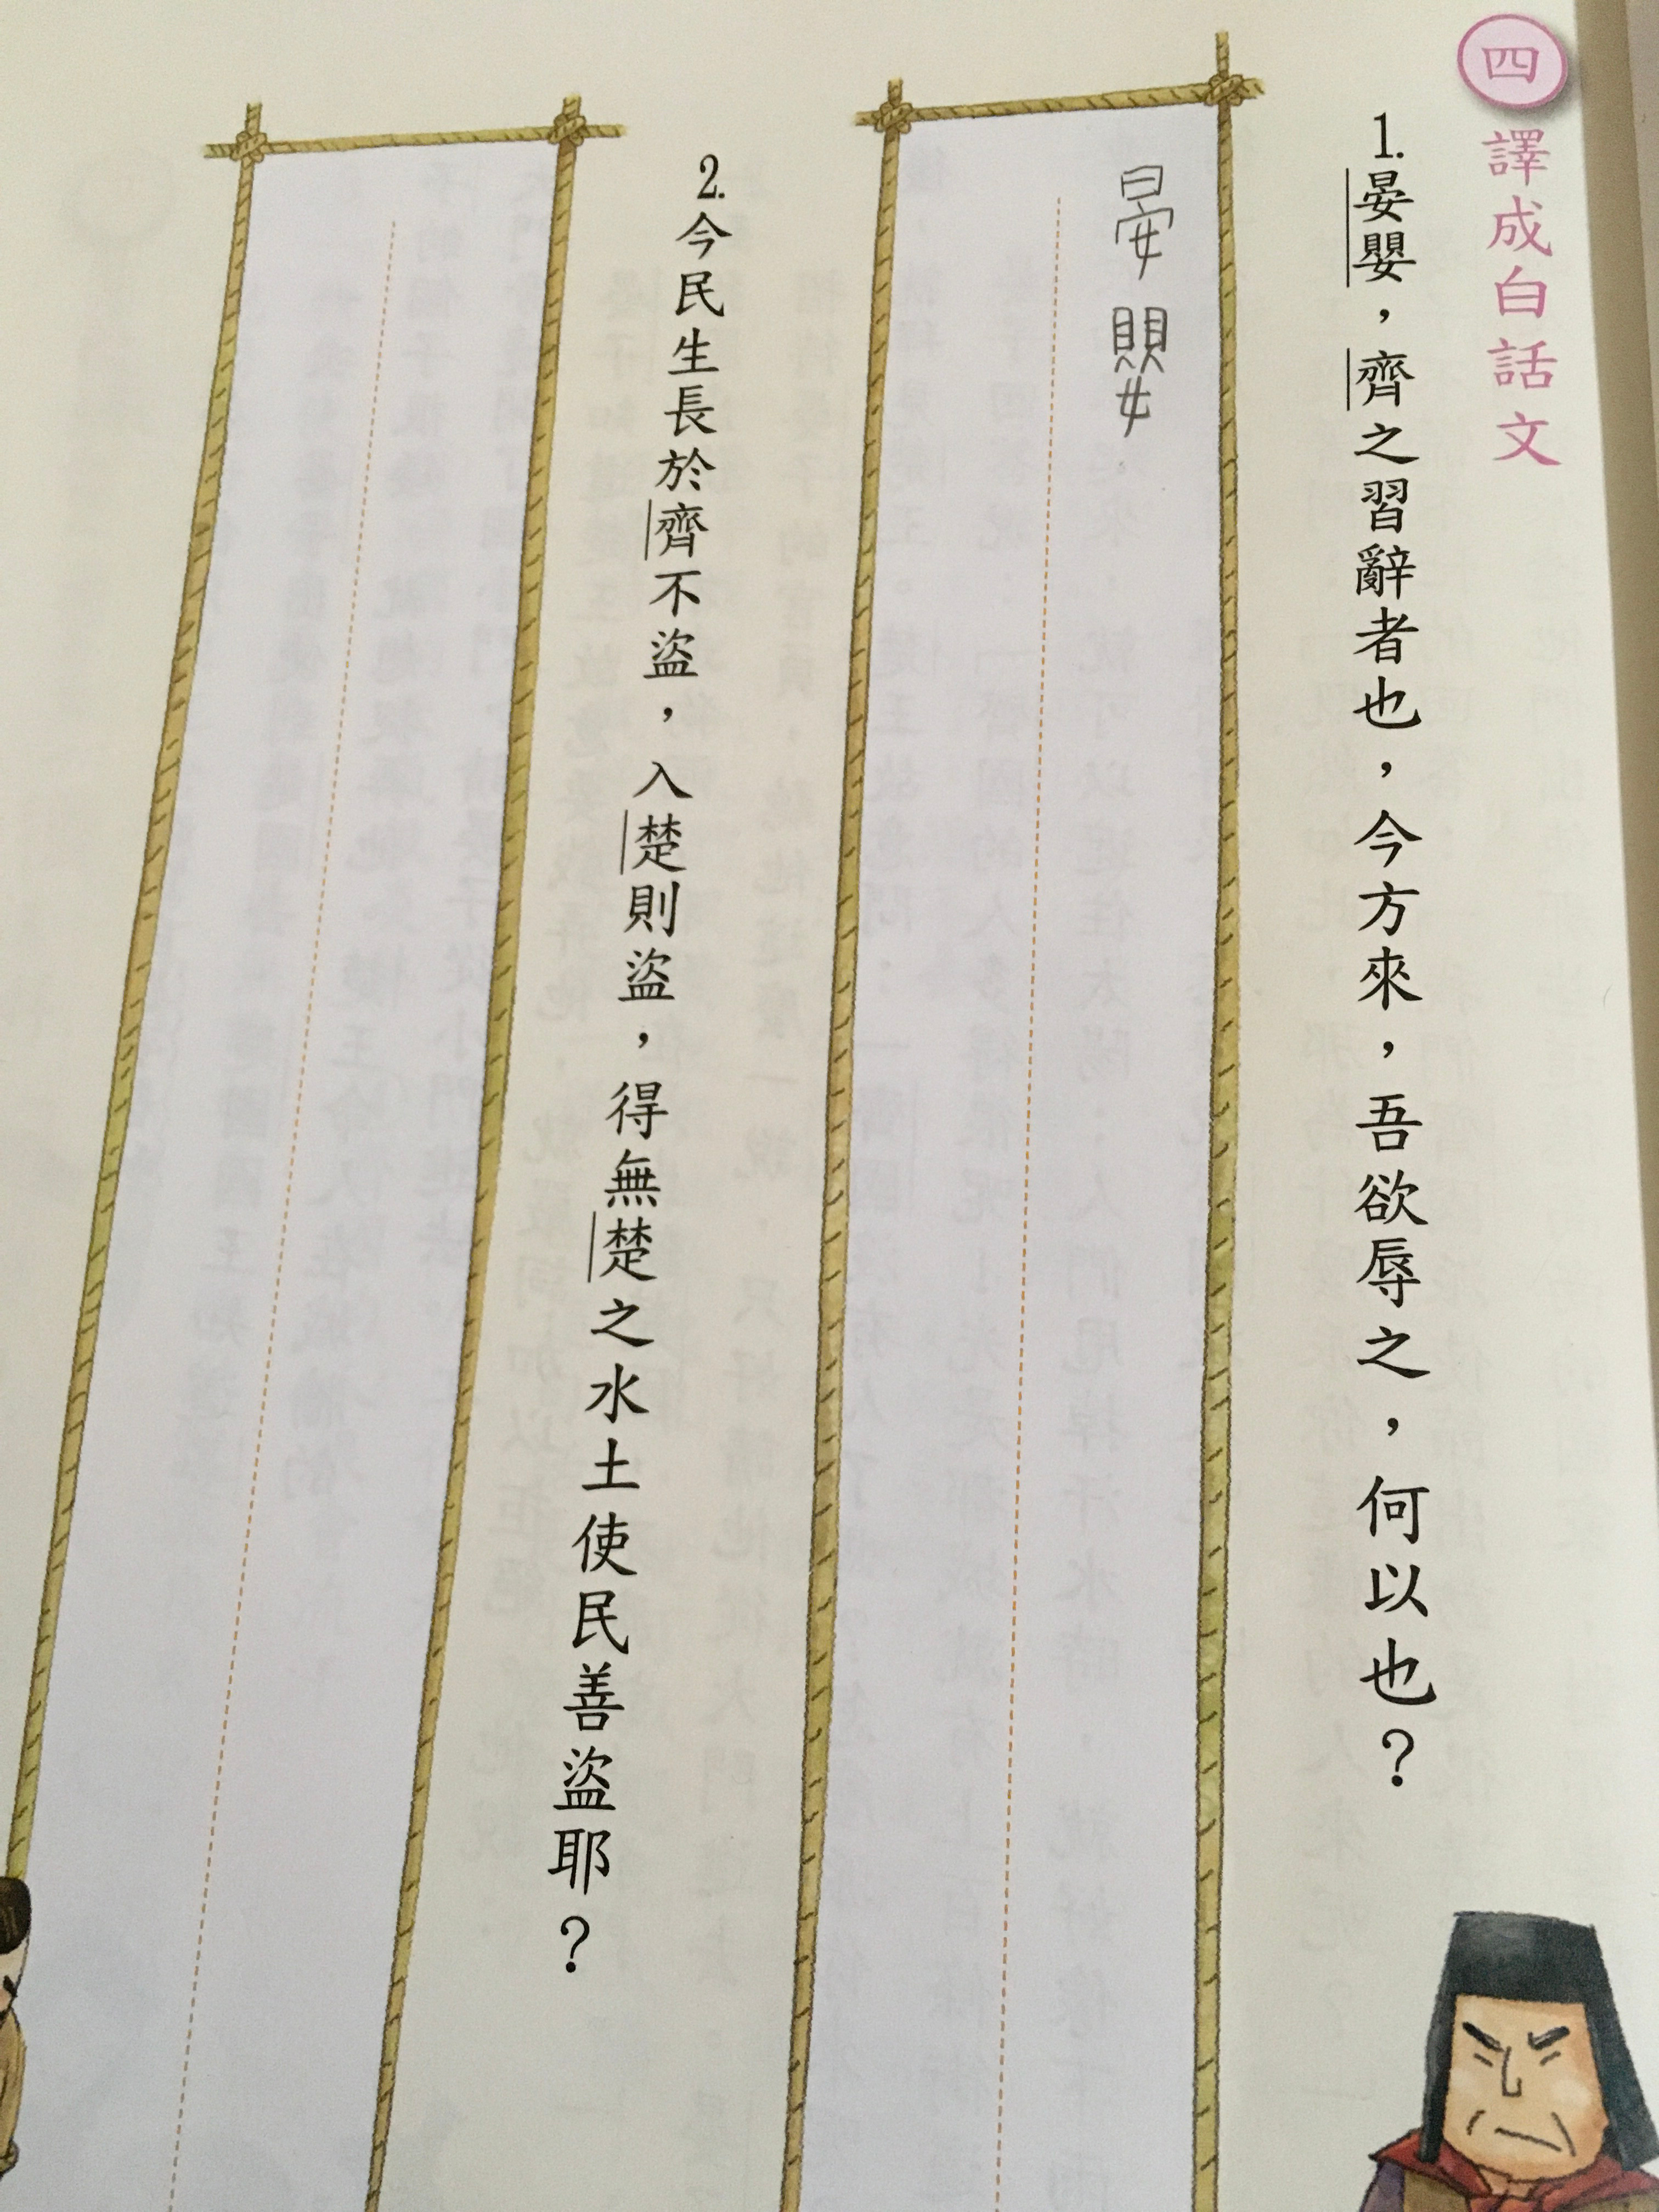 四 譯成白話文
1.晏嬰，齊之習辭者也，今方來，吾欲辱之，何以也？
晏嬰
2.今民生長於齊不盜，入楚則盜，得無楚之水土使民善盜耶？